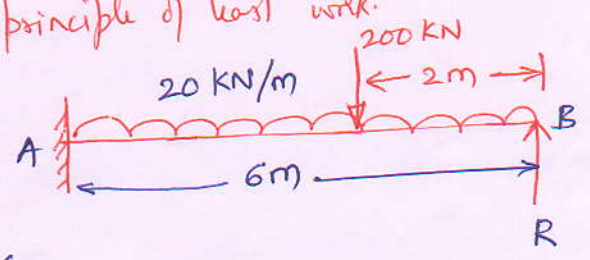 principle of least work.
200 KN
20 KN/m
2m
A
B
6m
R